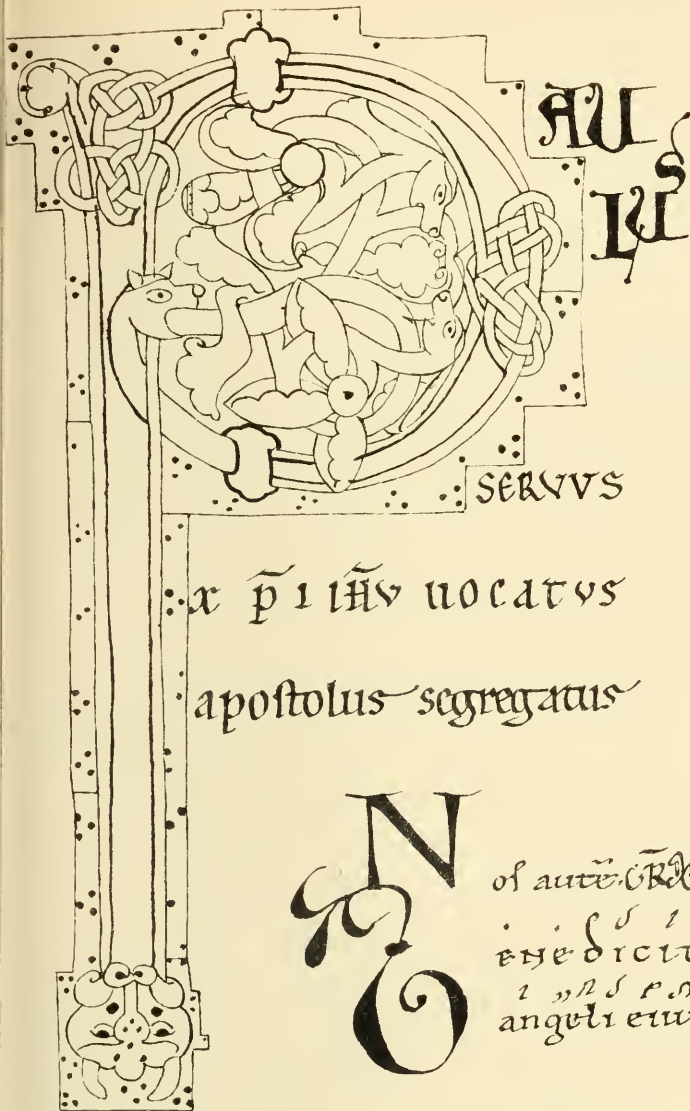 PAU
LUS
SERVVS
xp̄i iħv uocatvs
apoſtolus segregatus
Noſ autē
BENEDICIT
angeli eiu